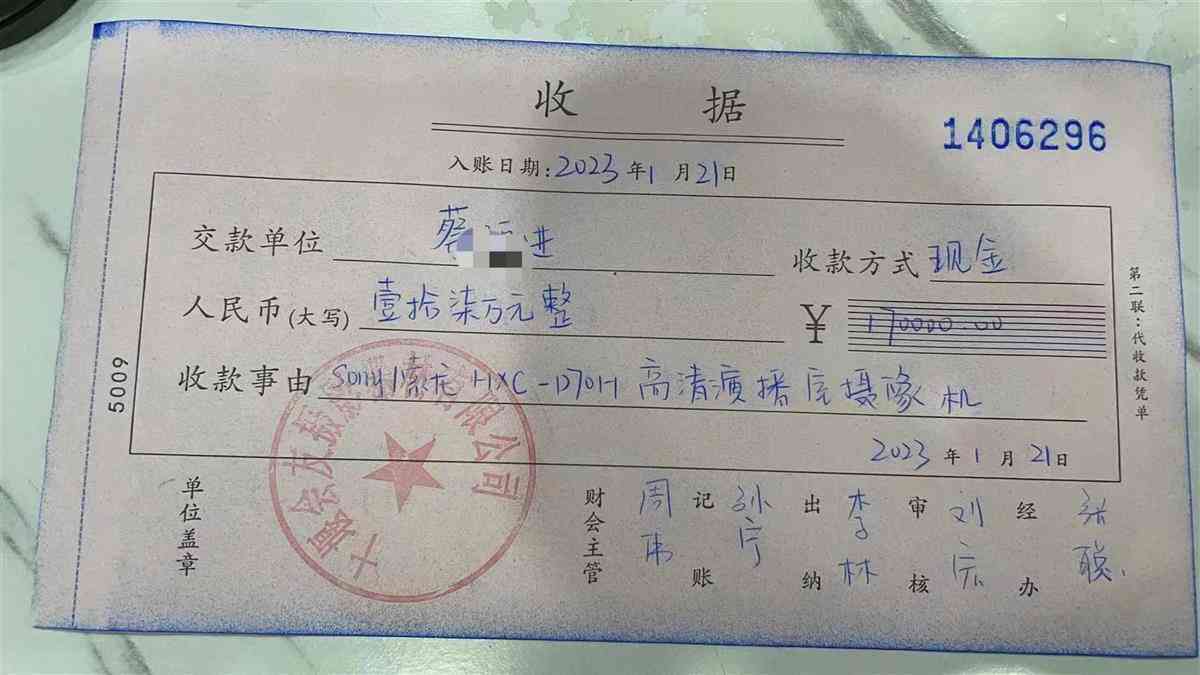 收 据
1406296
入账日期:2023年1月21日
交款单位 蔡 进 收款方式 现金
人民币(大写) 壹拾柒万元整 ¥ 170000.00
收款事由 Sony/索尼 HXC-D70H 高清演播室摄像机
2023年1月21日
单位盖章 财会主管 周伟 记账 孙宁 出纳 李林 审核 刘宏 经办 张聪
第二联:代收款凭单
5009
友振 有限公司